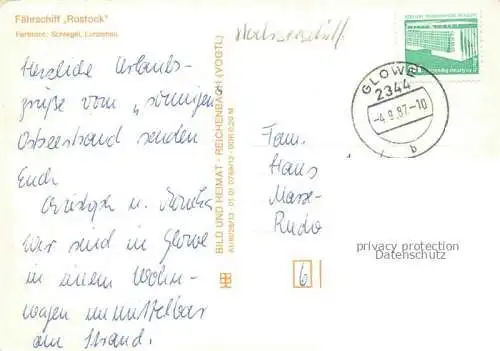 Fährschiff „Rostock"
Farbfoto: Schlegel, Lunzenau
Herzliche Urlaubs-
grüße vom „sonnigen
Ostseestrand senden
Euch
Christoph u. Monika
Wir sind in Glowe
in einem Wohn-
wagen unmittelbar
am Strand.
BILD UND HEIMAT · REICHENBACH (VOGTL)
GLOWE
2344
-4.9.87.-10
b
Fam.
Hans
privacy protection
Datenschutz